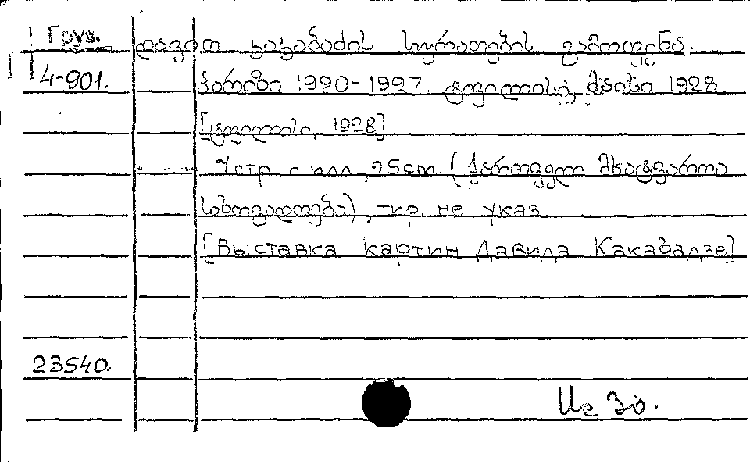 Груз. დავით კაკაბაძის სურათების გამოფენა.
4-901. პარიზი 1920-1927. ტფილისი, მაისი 1928
[ტფილისი, 1928]
7 стр. с илл., 25 cm. (ქართველ მხატვართა
საზოგადოება), тир. не указ
[Выставка картин Давида Какабадзе]
23540.